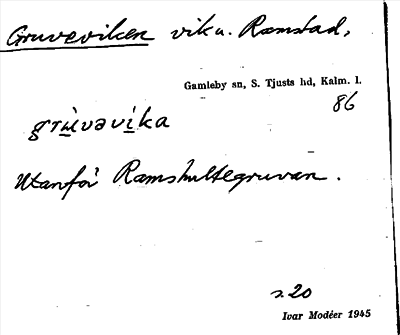 Gruveviken vik u. Ramstad,
Gamleby sn, S. Tjusts hd, Kalm. l.
86
grùvəvìka
Utanför Ramshultegruvan.
s. 20
Ivar Modéer 1945